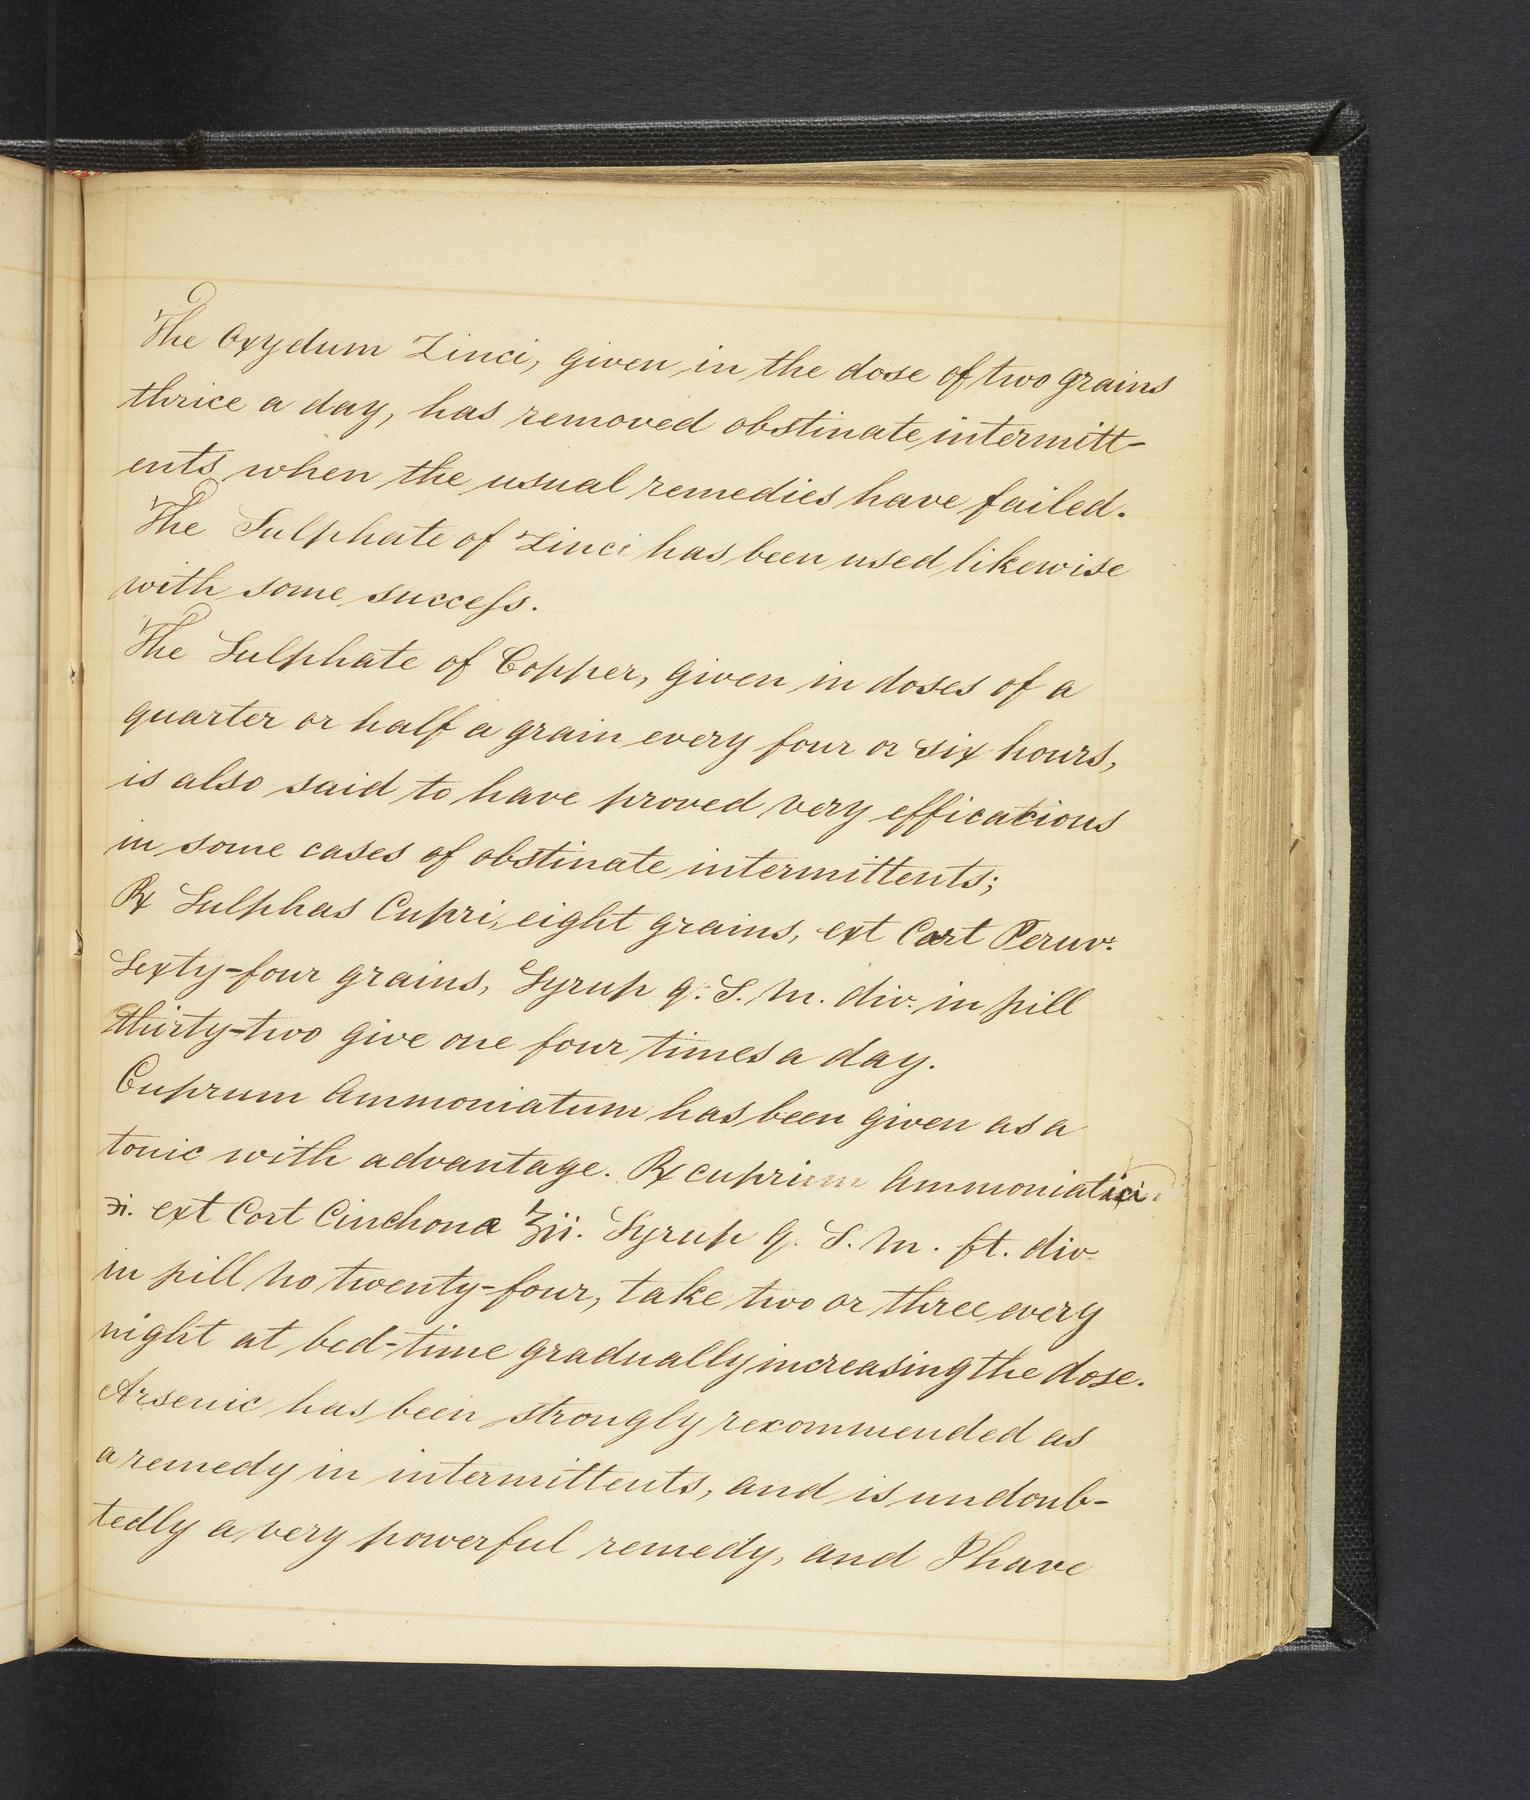 The Oxydum Zinci, given in the dose of two grains
thrice a day, has removed obstinate intermitt-
ents when the usual remedies have failed.
The Sulphate of Zinci has been used likewise
with some success.
The Sulphate of Copper, given in doses of a
quarter or half a grain every four or six hours,
is also said to have proved very efficacious
in some cases of obstinate intermittents;
℞ Sulphas Cupri, eight grains, ext Cort Peruv.
Sexty-four grains, Syrup q. S. M. div. in pill
thirty-two give one four times a day.
Cuprum Ammoniatum has been given as a
tonic with advantage. ℞ cuprium Ammoniati
ʒi. ext Cort Cinchona ʒii. Syrup q. S. M. ft. div
in pill no twenty-four, take two or three every
night at bed-time gradually increasing the dose.
Arsenic has been strongly recommended as
a remedy in intermittents, and is undoub-
tedly a very powerful remedy, and I have